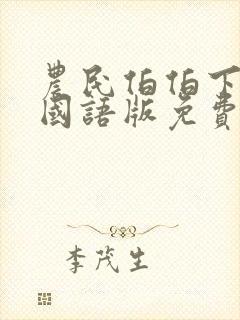 農民伯伯下
國語版免費
李茂生